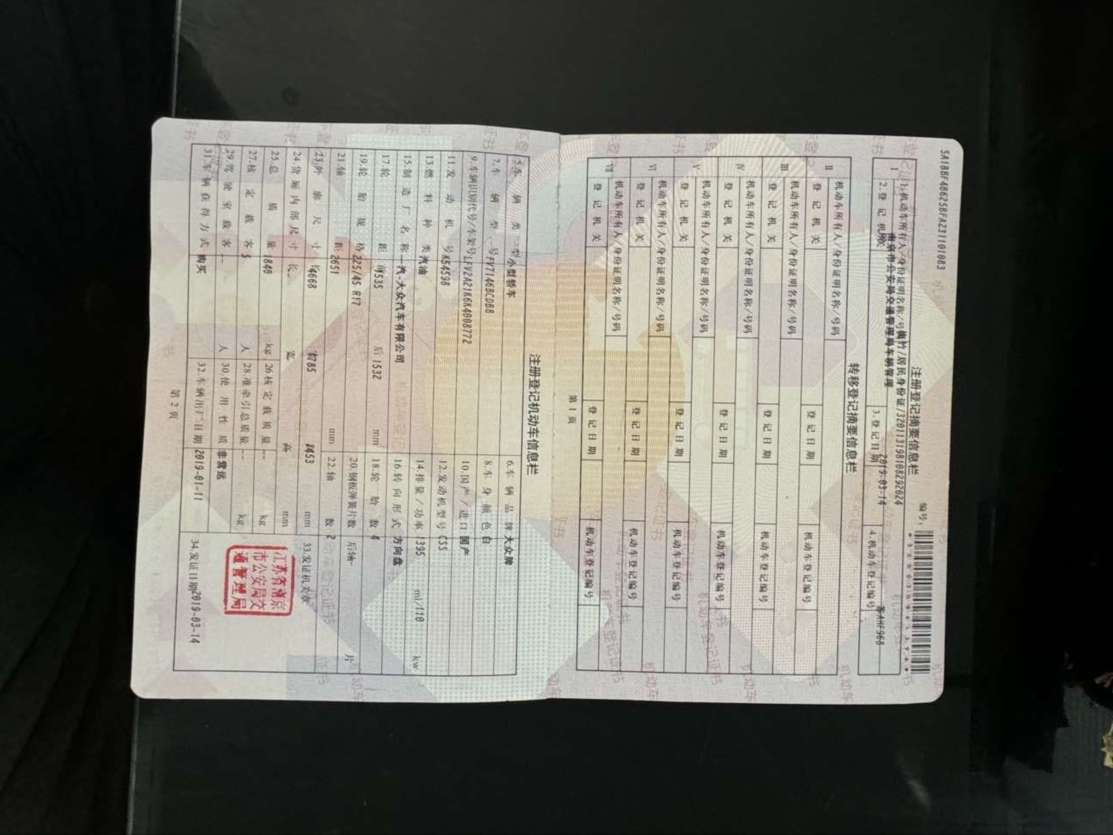 5A1BBF406258FA231101083
注册登记摘要信息栏
编号:
I
1.机动车所有人/身份证明名称/号码
/居民身份证/320113198108292024
2.登记机关
南京市公安局交通管理局车辆管理
3.登记日期
2019-03-14
4.机动车登记编号
转移登记摘要信息栏
II
机动车所有人/身份证明名称/号码
登记机关
登记日期
机动车登记编号
III
机动车所有人/身份证明名称/号码
登记机关
登记日期
机动车登记编号
IV
机动车所有人/身份证明名称/号码
登记机关
登记日期
机动车登记编号
V
机动车所有人/身份证明名称/号码
登记机关
登记日期
机动车登记编号
VI
机动车所有人/身份证明名称/号码
登记机关
登记日期
机动车登记编号
VII
机动车所有人/身份证明名称/号码
登记机关
登记日期
机动车登记编号
第 1 页
注册登记机动车信息栏
5.车辆类型 小型轿车 6.车辆品牌 大众牌
7.车辆型号 FV7146BCDBB 8.车身颜色 白
9.车辆识别代号/车架号 LFV2A21K6K4008772 10.国产/进口 国产
11.发动机号 K54598 12.发动机型号 CSS
13.燃料种类 汽油 14.排量/功率 1395 ml/110 kw
15.制造厂名称 一汽-大众汽车有限公司 16.转向形式 方向盘
17.轮距 前1535 后1532 mm 18.轮胎数 4
19.轮胎规格 225/45 R17 20.钢板弹簧片数 后轴-- 片
21.轴距 2651 mm 22.轴数 2
23.外廓尺寸 长4668 宽1785 高1453 mm
24.货厢内部尺寸 长 宽 高 mm
33.发证机关章
江苏省南京
市公安局交
通管理局
25.总质量 1840 kg 26.核定载质量 -- kg
27.核定载客 5 人 28.准牵引总质量 -- kg
29.驾驶室载客 -- 人 30.使用性质 非营运
31.车辆获得方式 购买 32.车辆出厂日期 2019-01-11
34.发证日期 2019-03-14
第 2 页